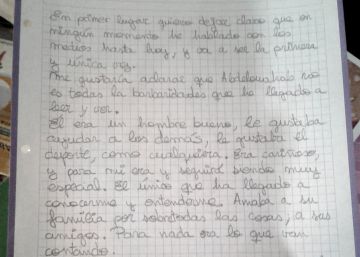 En primer lugar quiero dejar claro que en
ningún momento he hablado con los
medios hasta hoy, y va a ser la primera
y única vez.
Me gustaría aclarar que Abdelouahab no
es todas la barbaridades que he llegado a
leer y ver.
El era un hombre bueno, le gustaba
ayudar a los demás, le gustaba el
deporte, como cualquiera, era cariñoso,
y para mi era y seguirá siendo muy
especial. El único que ha llegado a
conocerme y entenderme. Amaba a su
familia por sobretodas las cosas, a sus
amigos. Para nada era lo que van
contando.